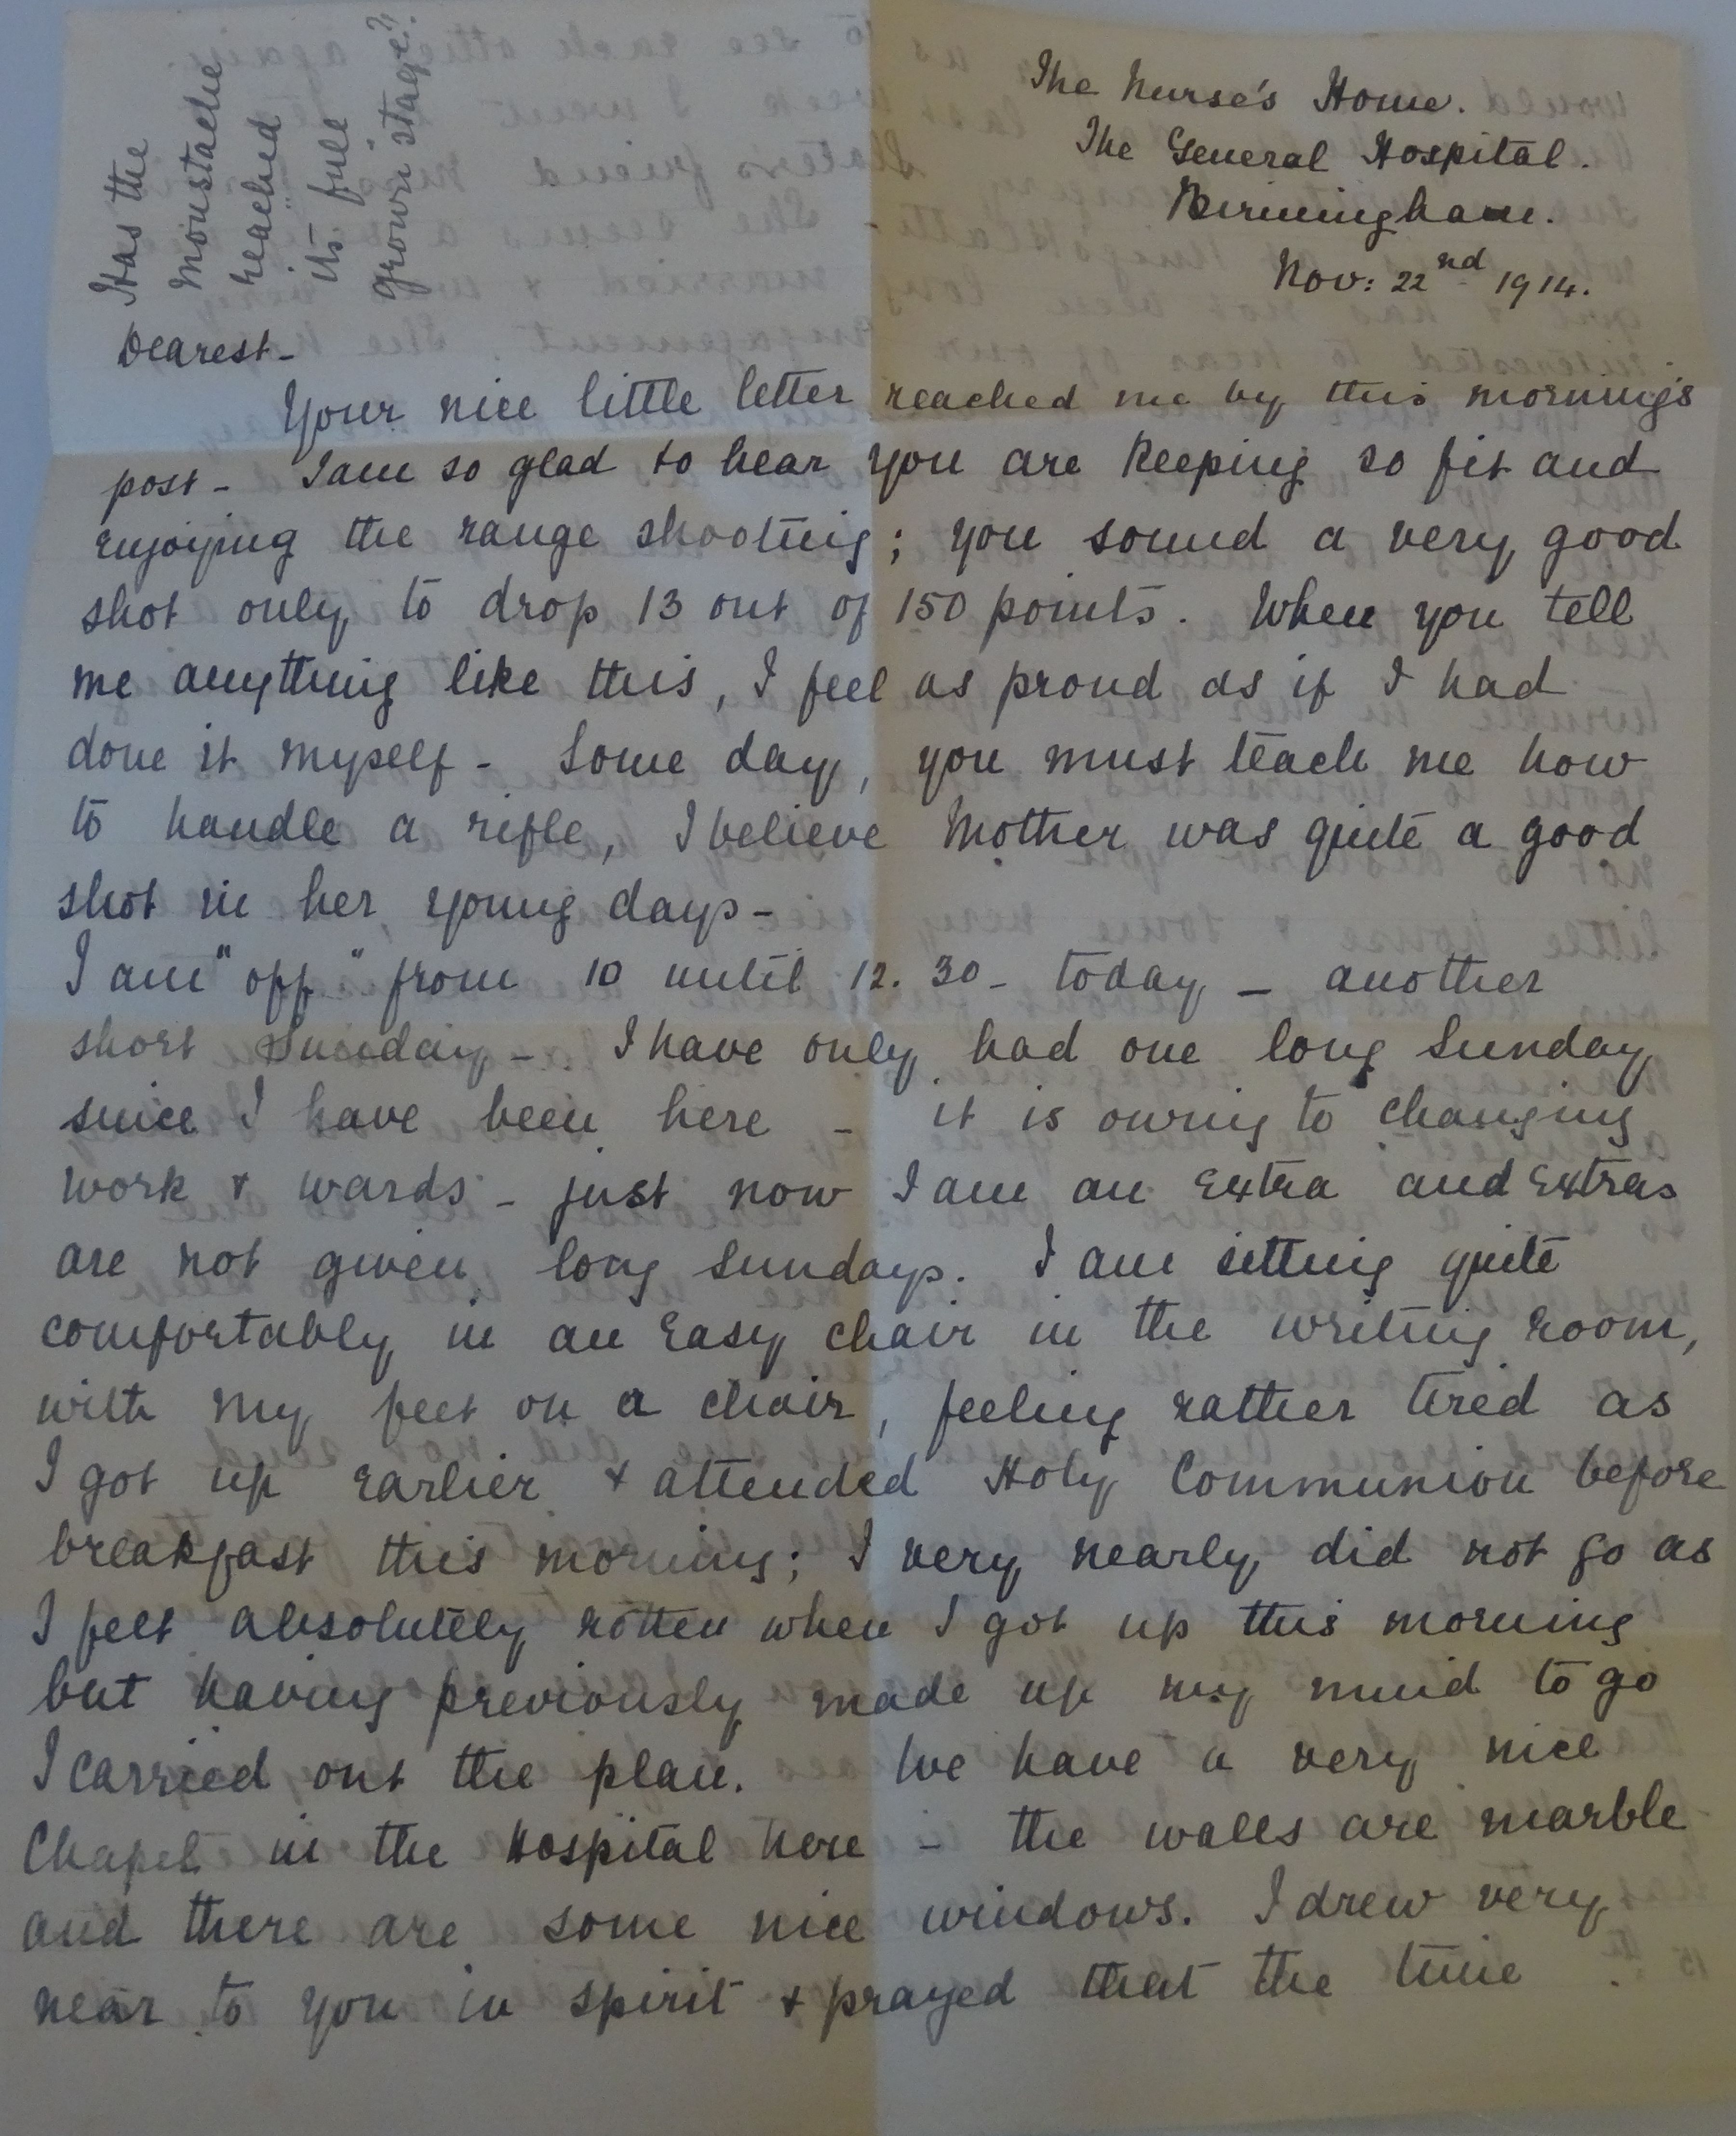 The Nurse's Home.
The General Hospital.
Birmingham.
Nov: 22nd 1914.
Has the
moustache
reached
its full
grown stage?
Dearest -
Your nice little letter reached me by this morning's
post - I am so glad to hear you are keeping so fit and
enjoying the range shooting; you sound a very good
shot only to drop 13 out of 150 points. When you tell
me anything like this, I feel as proud as if I had
done it myself - Some day, you must teach me how
to handle a rifle, I believe Mother was quite a good
shot in her young days -
I am "off" from 10 until 12.30 - today - another
short Sunday - I have only had one long Sunday
since I have been here - it is owing to changing
work & wards - just now I am an Extra and Extras
are not given long Sundays. I am sitting quite
comfortably in an easy chair in the writing room,
with my feet on a chair, feeling rather tired as
I got up earlier & attended Holy Communion before
breakfast this morning; I very nearly did not go as
I felt absolutely rotten when I got up this morning
but having previously made up my mind to go
I carried out the plan. We have a very nice
Chapel in the hospital here - the walls are marble
and there are some nice windows. I drew very
near to you in spirit & prayed that the time